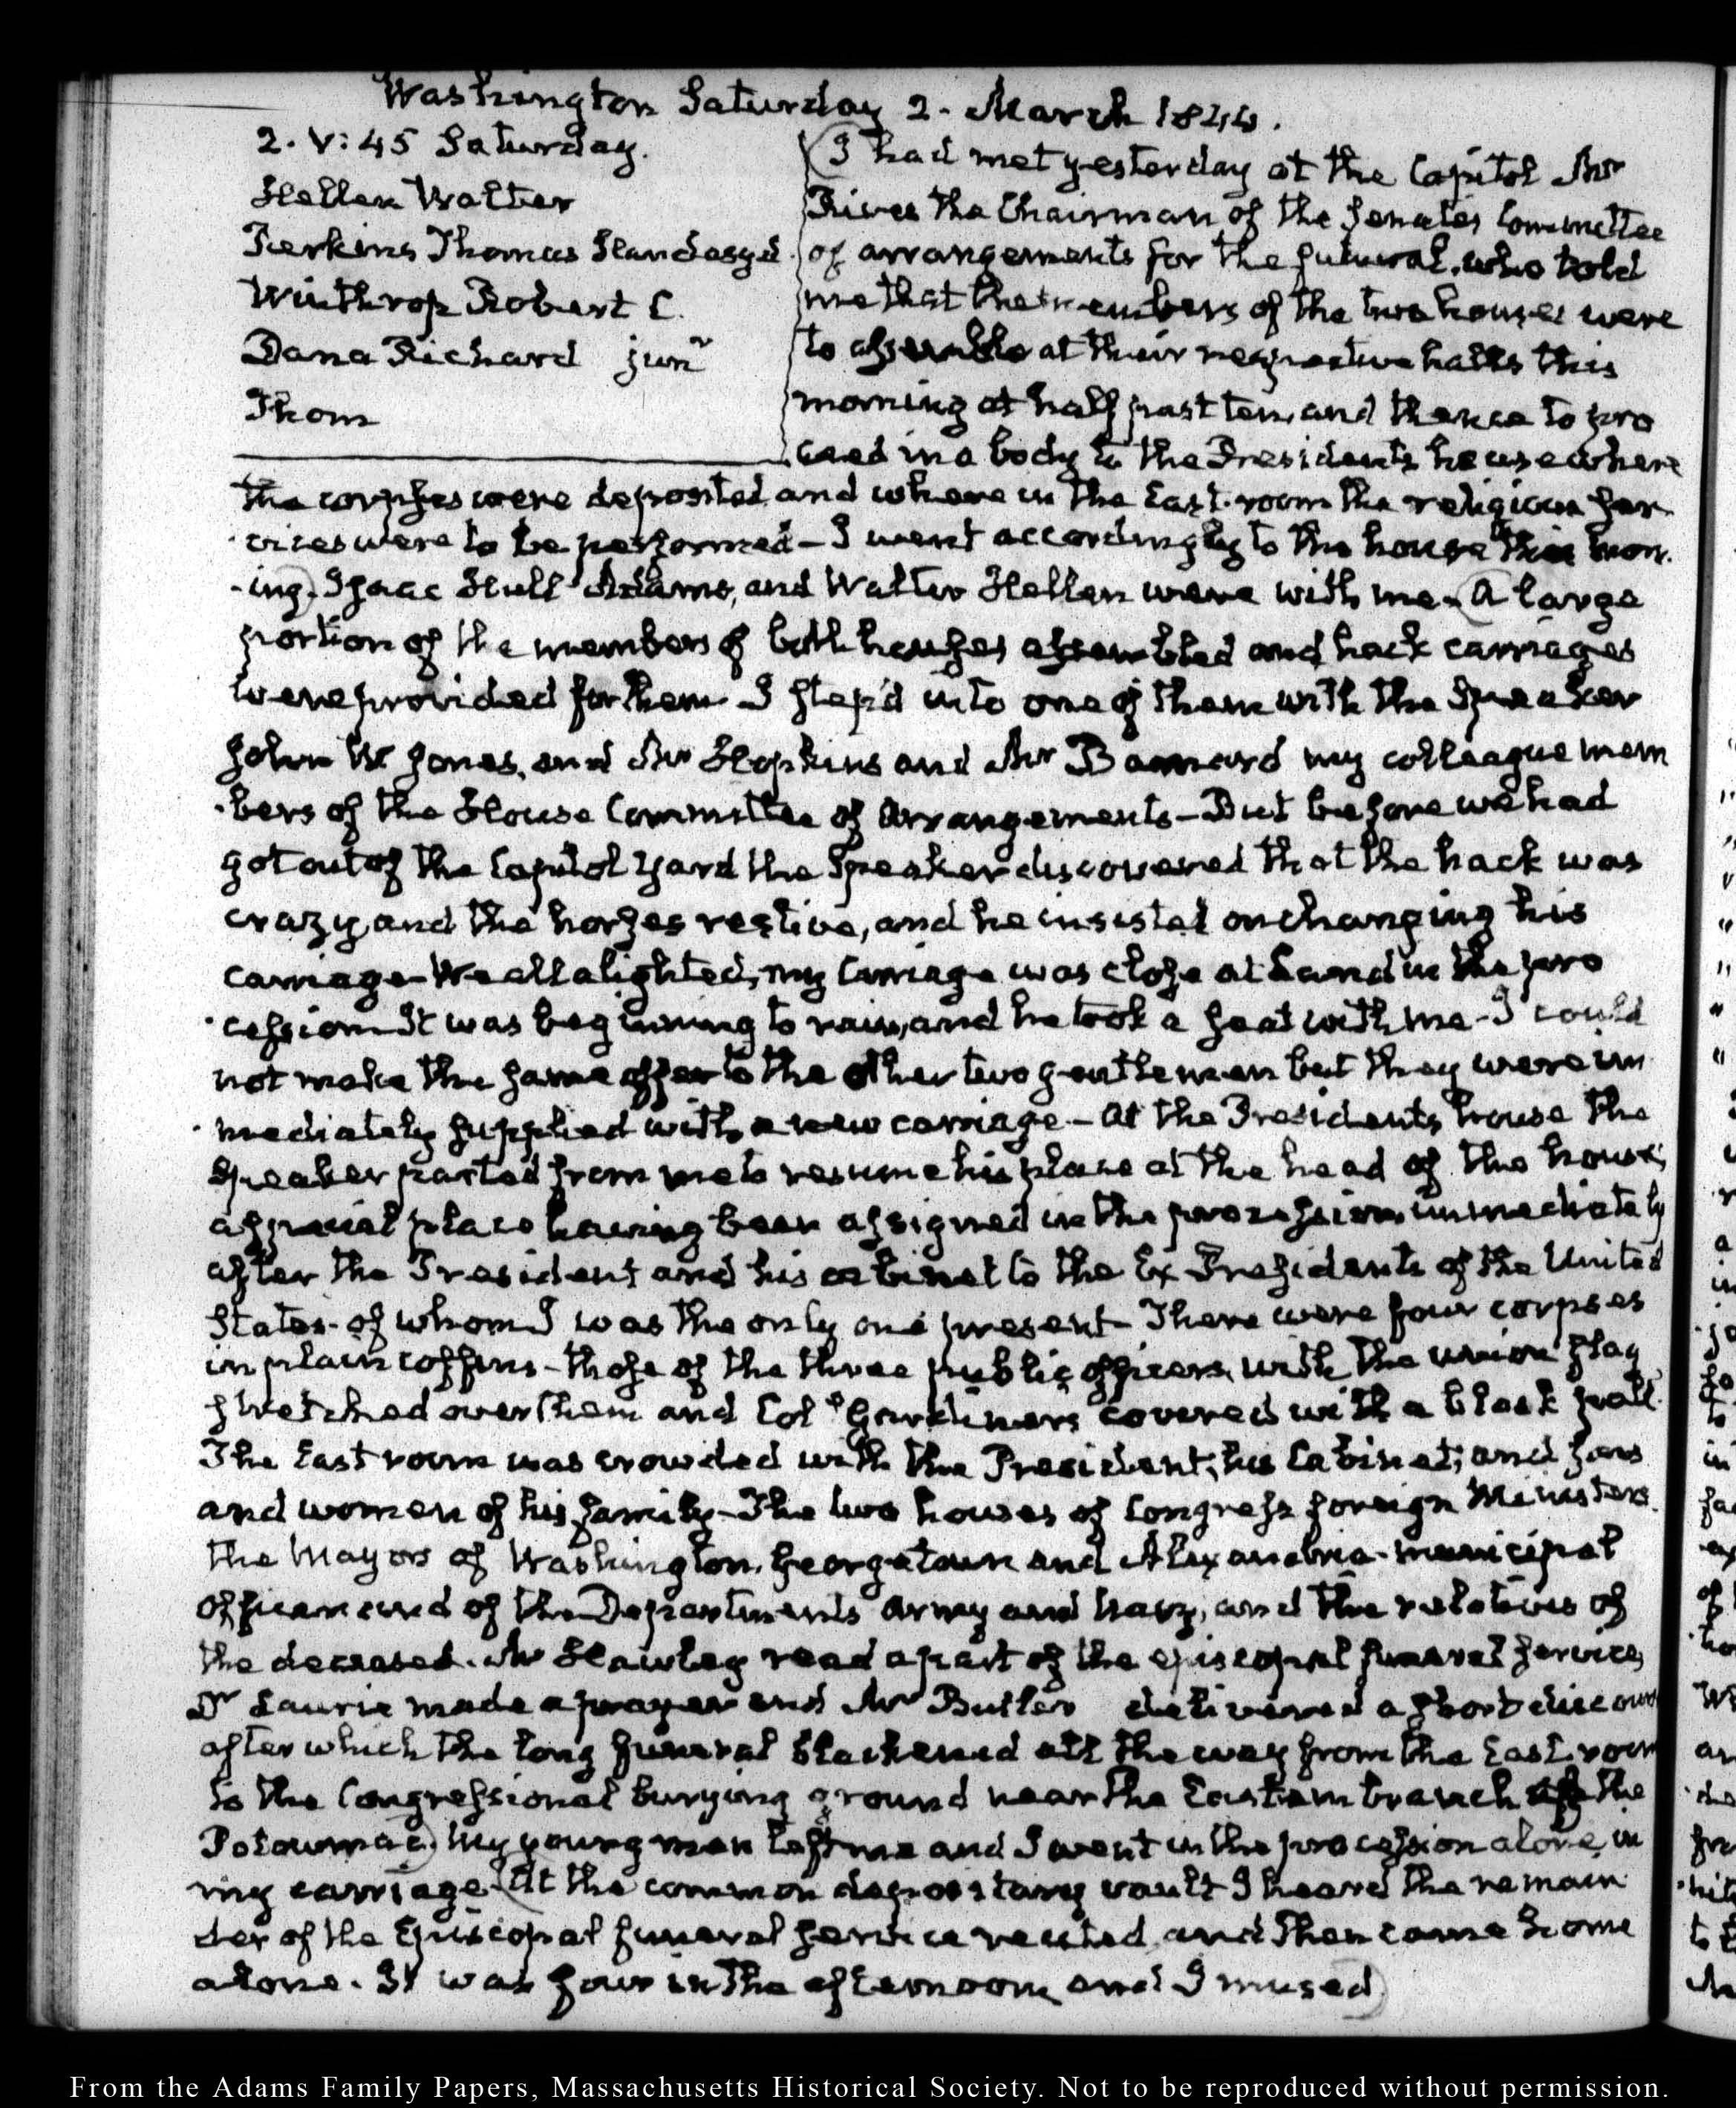 Washington Saturday 2. March 1844.
2. V:45 Saturday.
Hellen Walter
Perkins Thomas Handasyd.
Winthrop Robert C.
Dana Richard junr
Thom
(I had met yesterday at the Capitol Mr
Rives the Chairman of the Senates Committee
of arrangements for the funeral, who told
me that the members of the two houses were
to assemble at their respective halls this
morning at half past ten, and thence to pro
ceed in a body to the Presidents house where
the corpses were deposited and where in the East-room the religious ser
vices were to be performed – I went accordingly to the house this morn.
-ing). Isaac Hull Adams, and Walter Hellen were with me – (A large
portion of the members of both houses assembled and hack carriages
were provided for them – I step'd into one of them with the Speaker
John W. Jones, and Mr Hopkins and Mr Barnard my colleague mem
-bers of the House Committee of Arrangements – But before we had
got out of the Capitol yard the Speaker discovered that the hack was
crazy, and the horses restive, and he insisted on changing his
carriage – We all alighted, my Carriage was close at hand in the pro
-cession – It was beginning to rain, and he took a seat with me – I could
not make the same offer to the other two gentlemen but they were im
-mediately supplied with a new carriage – At the Presidents house the
Speaker parted from me to resume his place at the head of the house,
a special place having been assigned in the procession immediately
after the President and his cabinet to the Ex Presidents of the United
States – of whom I was the only one present – There were four corpses
in plain coffins – those of the three public officers, with the union flag
stretched over them and Coll Gardiners covered with a black pall.
The East room was crowded with the President, his Cabinet, and sons
and women of his family – The two houses of Congress foreign Ministers.
The Mayors of Washington, Georgetown and Alexandria – municipal
officers and of the Departments Army and Navy, and the relatives of
the deceased. Mr Hawley read a part of the episcopal funeral service,
Dr Laurie made a prayer and Mr Butler delivered a short discours
after which the long funeral blackened all the way from the East room
to the Congressional burying ground near the Eastern branch of the
Potowmac) My young men left me and I went in the procession alone, in
my carriage – (At the common depository vault I heard the remain
der of the Episcopal funeral service recited, and then came home
alone. It was four in the afternoon, and I mused)
From the Adams Family Papers, Massachusetts Historical Society. Not to be reproduced without permission.